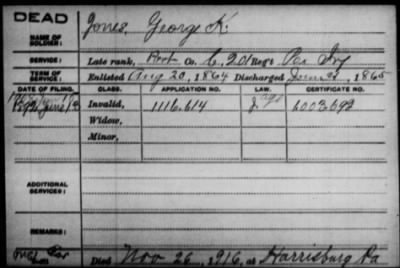 DEAD
NAME OF SOLDIER: Jones, George K.
SERVICE: Late rank, Co. C, 201 Reg't Pa Inf
TERM OF SERVICE: Enlisted Aug 20, 1864 Discharged June 21, 1865
DATE OF FILING. CLASS. APPLICATION NO. LAW. CERTIFICATE NO.
1892 June 13 Invalid, 1116.614 1003692
Widow,
Minor,
ADDITIONAL SERVICES:
REMARKS:
Died Nov 26, 1916, at Harrisburg Pa